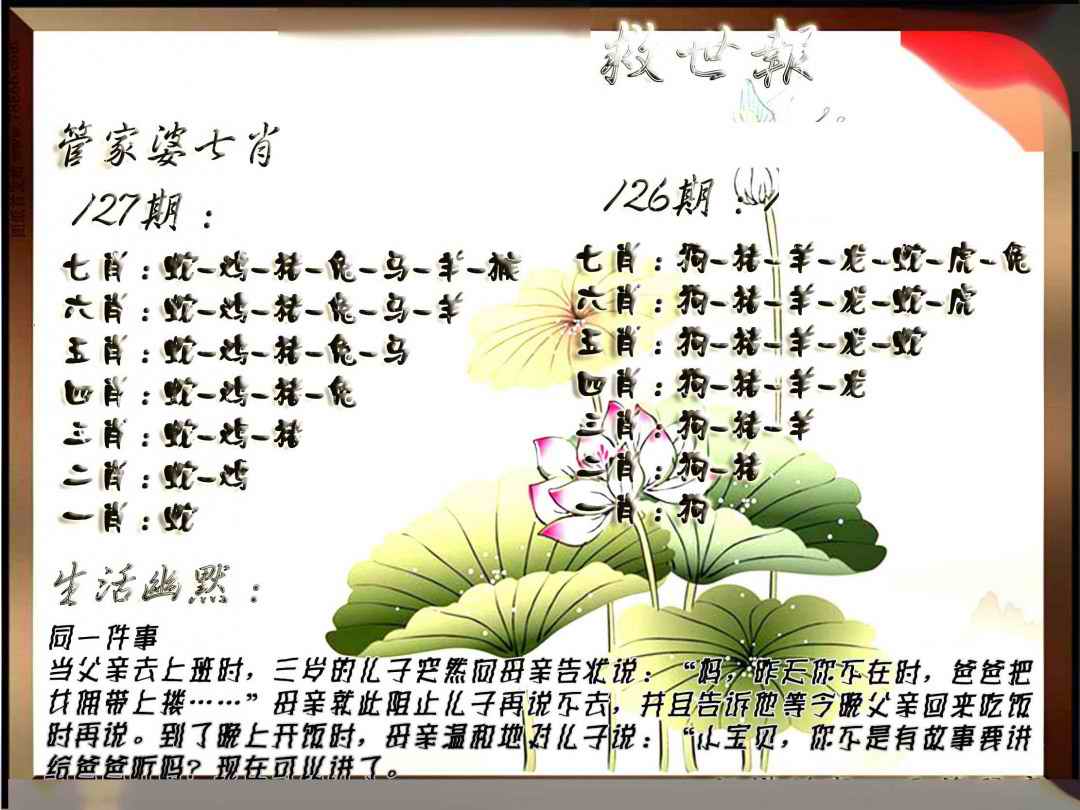 救世報
管家婆七肖
127期：
七肖：蛇-鸡-猪-兔-马-羊-猴
六肖：蛇-鸡-猪-兔-马-羊
五肖：蛇-鸡-猪-兔-马
四肖：蛇-鸡-猪-兔
三肖：蛇-鸡-猪
二肖：蛇-鸡
一肖：蛇
126期：
七肖：狗-猪-羊-龙-蛇-虎-兔
六肖：狗-猪-羊-龙-蛇-虎
五肖：狗-猪-羊-龙-蛇
四肖：狗-猪-羊-龙
三肖：狗-猪-羊
二肖：狗-猪
一肖：狗
生活幽默：
同一件事
当父亲去上班时，三岁的儿子突然向母亲告状说：“妈，昨天你不在时，爸爸把
女佣带上楼……”母亲就此阻止儿子再说下去，并且告诉他等今晚父亲回来吃饭
时再说。到了晚上开饭时，母亲温和地对儿子说：“小宝贝，你不是有故事要讲
给爸爸听吗？现在可以讲了。